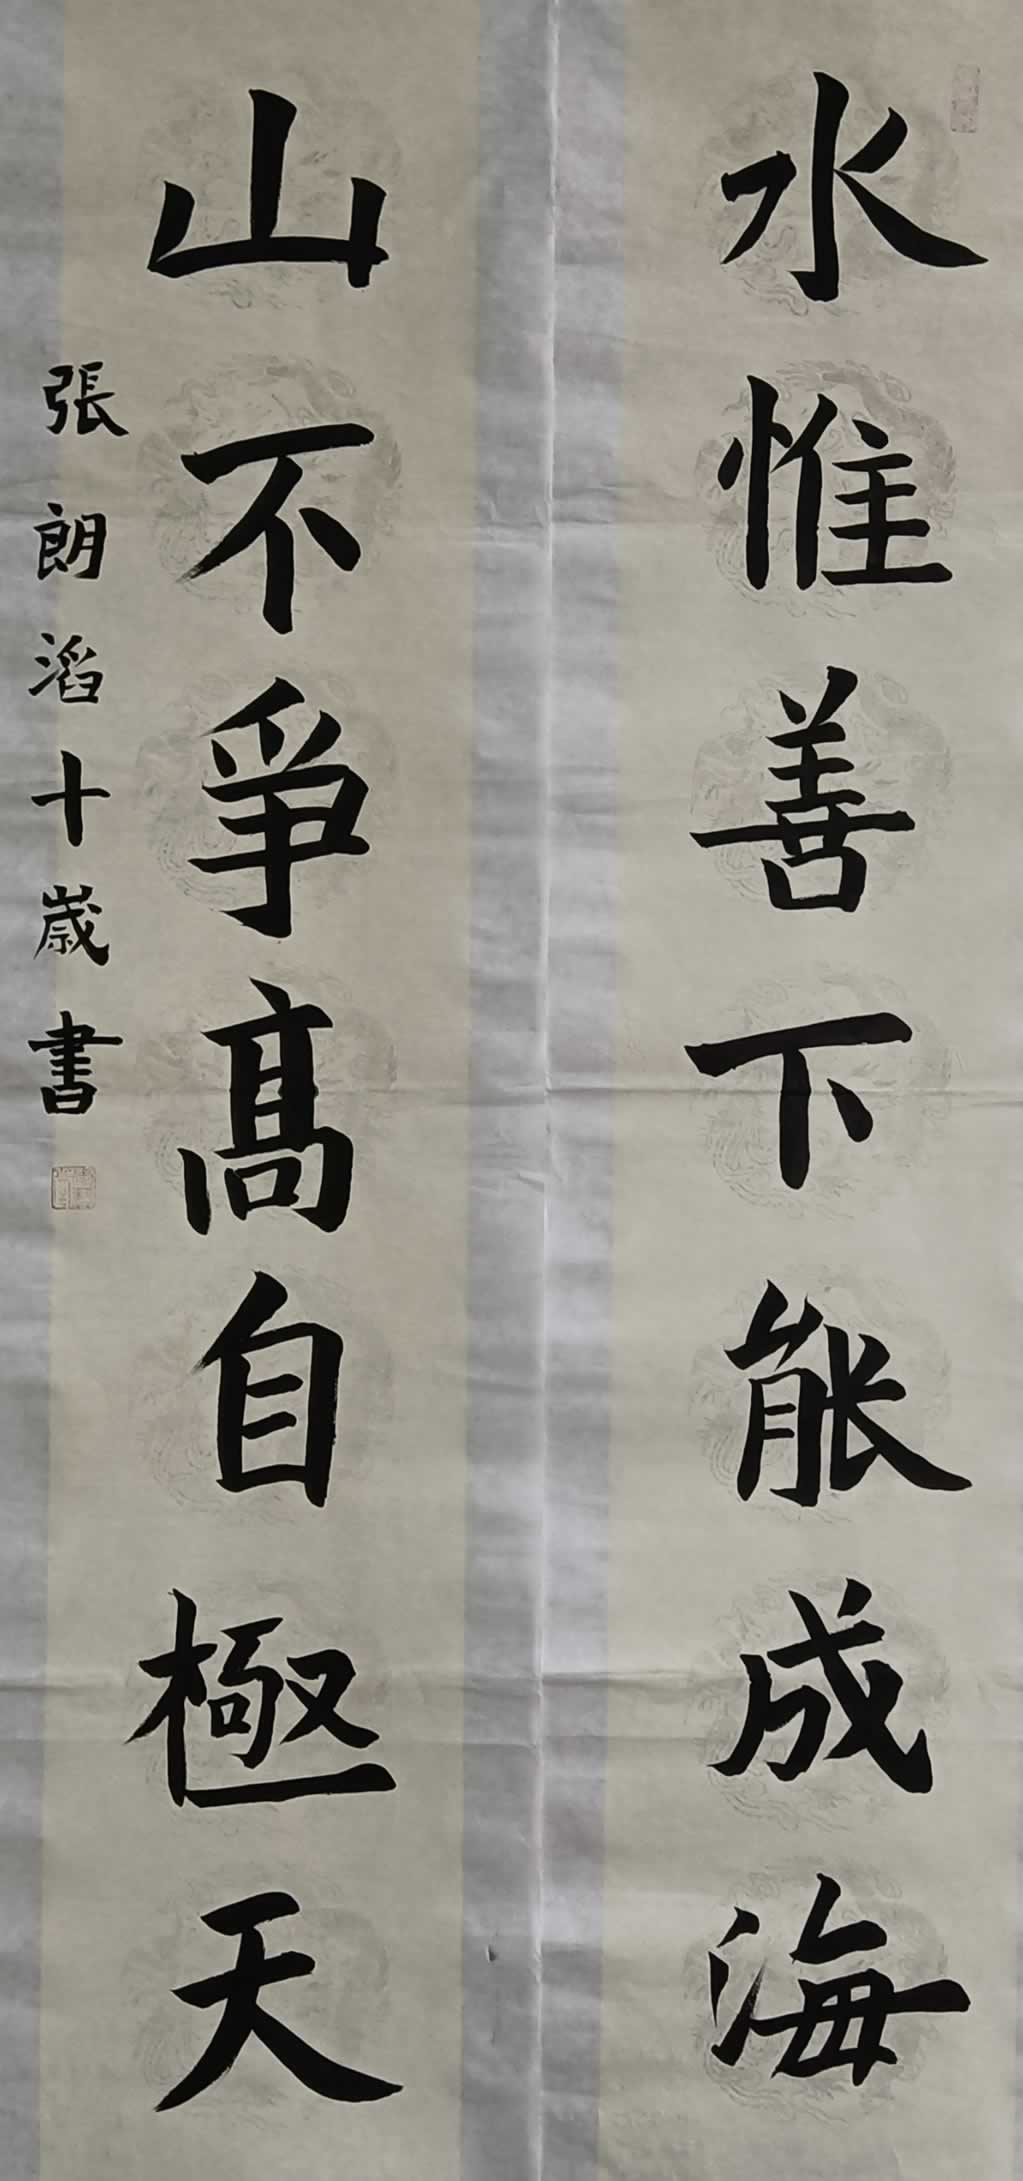 水惟善下能成海
山不爭高自極天
張朗滔十歲書